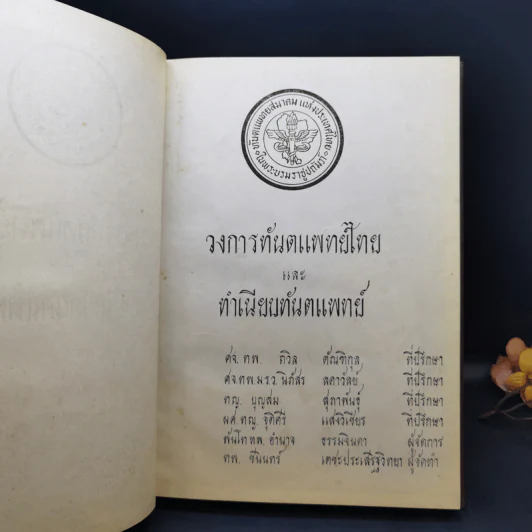 ทันตแพทยสมาคมแห่งประเทศไทย
ในพระบรมราชูปถัมภ์
วงการทันตแพทย์ไทย
และ
ทำเนียบทันตแพทย์
ศจ. ทพ. ถวิล ตัณฑิกุล ที่ปรึกษา
ศจ.ทพ.ม.ร.ว. นิภัสร ลดาวัลย์ ที่ปรึกษา
ทญ. บุญสม สุภาพันธุ์ ที่ปรึกษา
ผศ. ทญ. จุติศรี แสงวิเชียร ที่ปรึกษา
พันโท ทพ. อำนาจ ธรรมจินดา ผู้จัดการ
ทพ. ชินินทร์ เตชะประเสริฐวิทยา ผู้จัดทำ